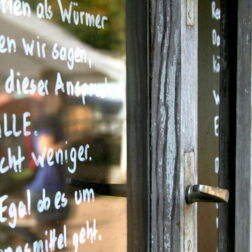 als Würmer
wir sagen,
dieser Anspruch
ALLE.
cht weniger.
Egal ob es um
ngsmittel geht.